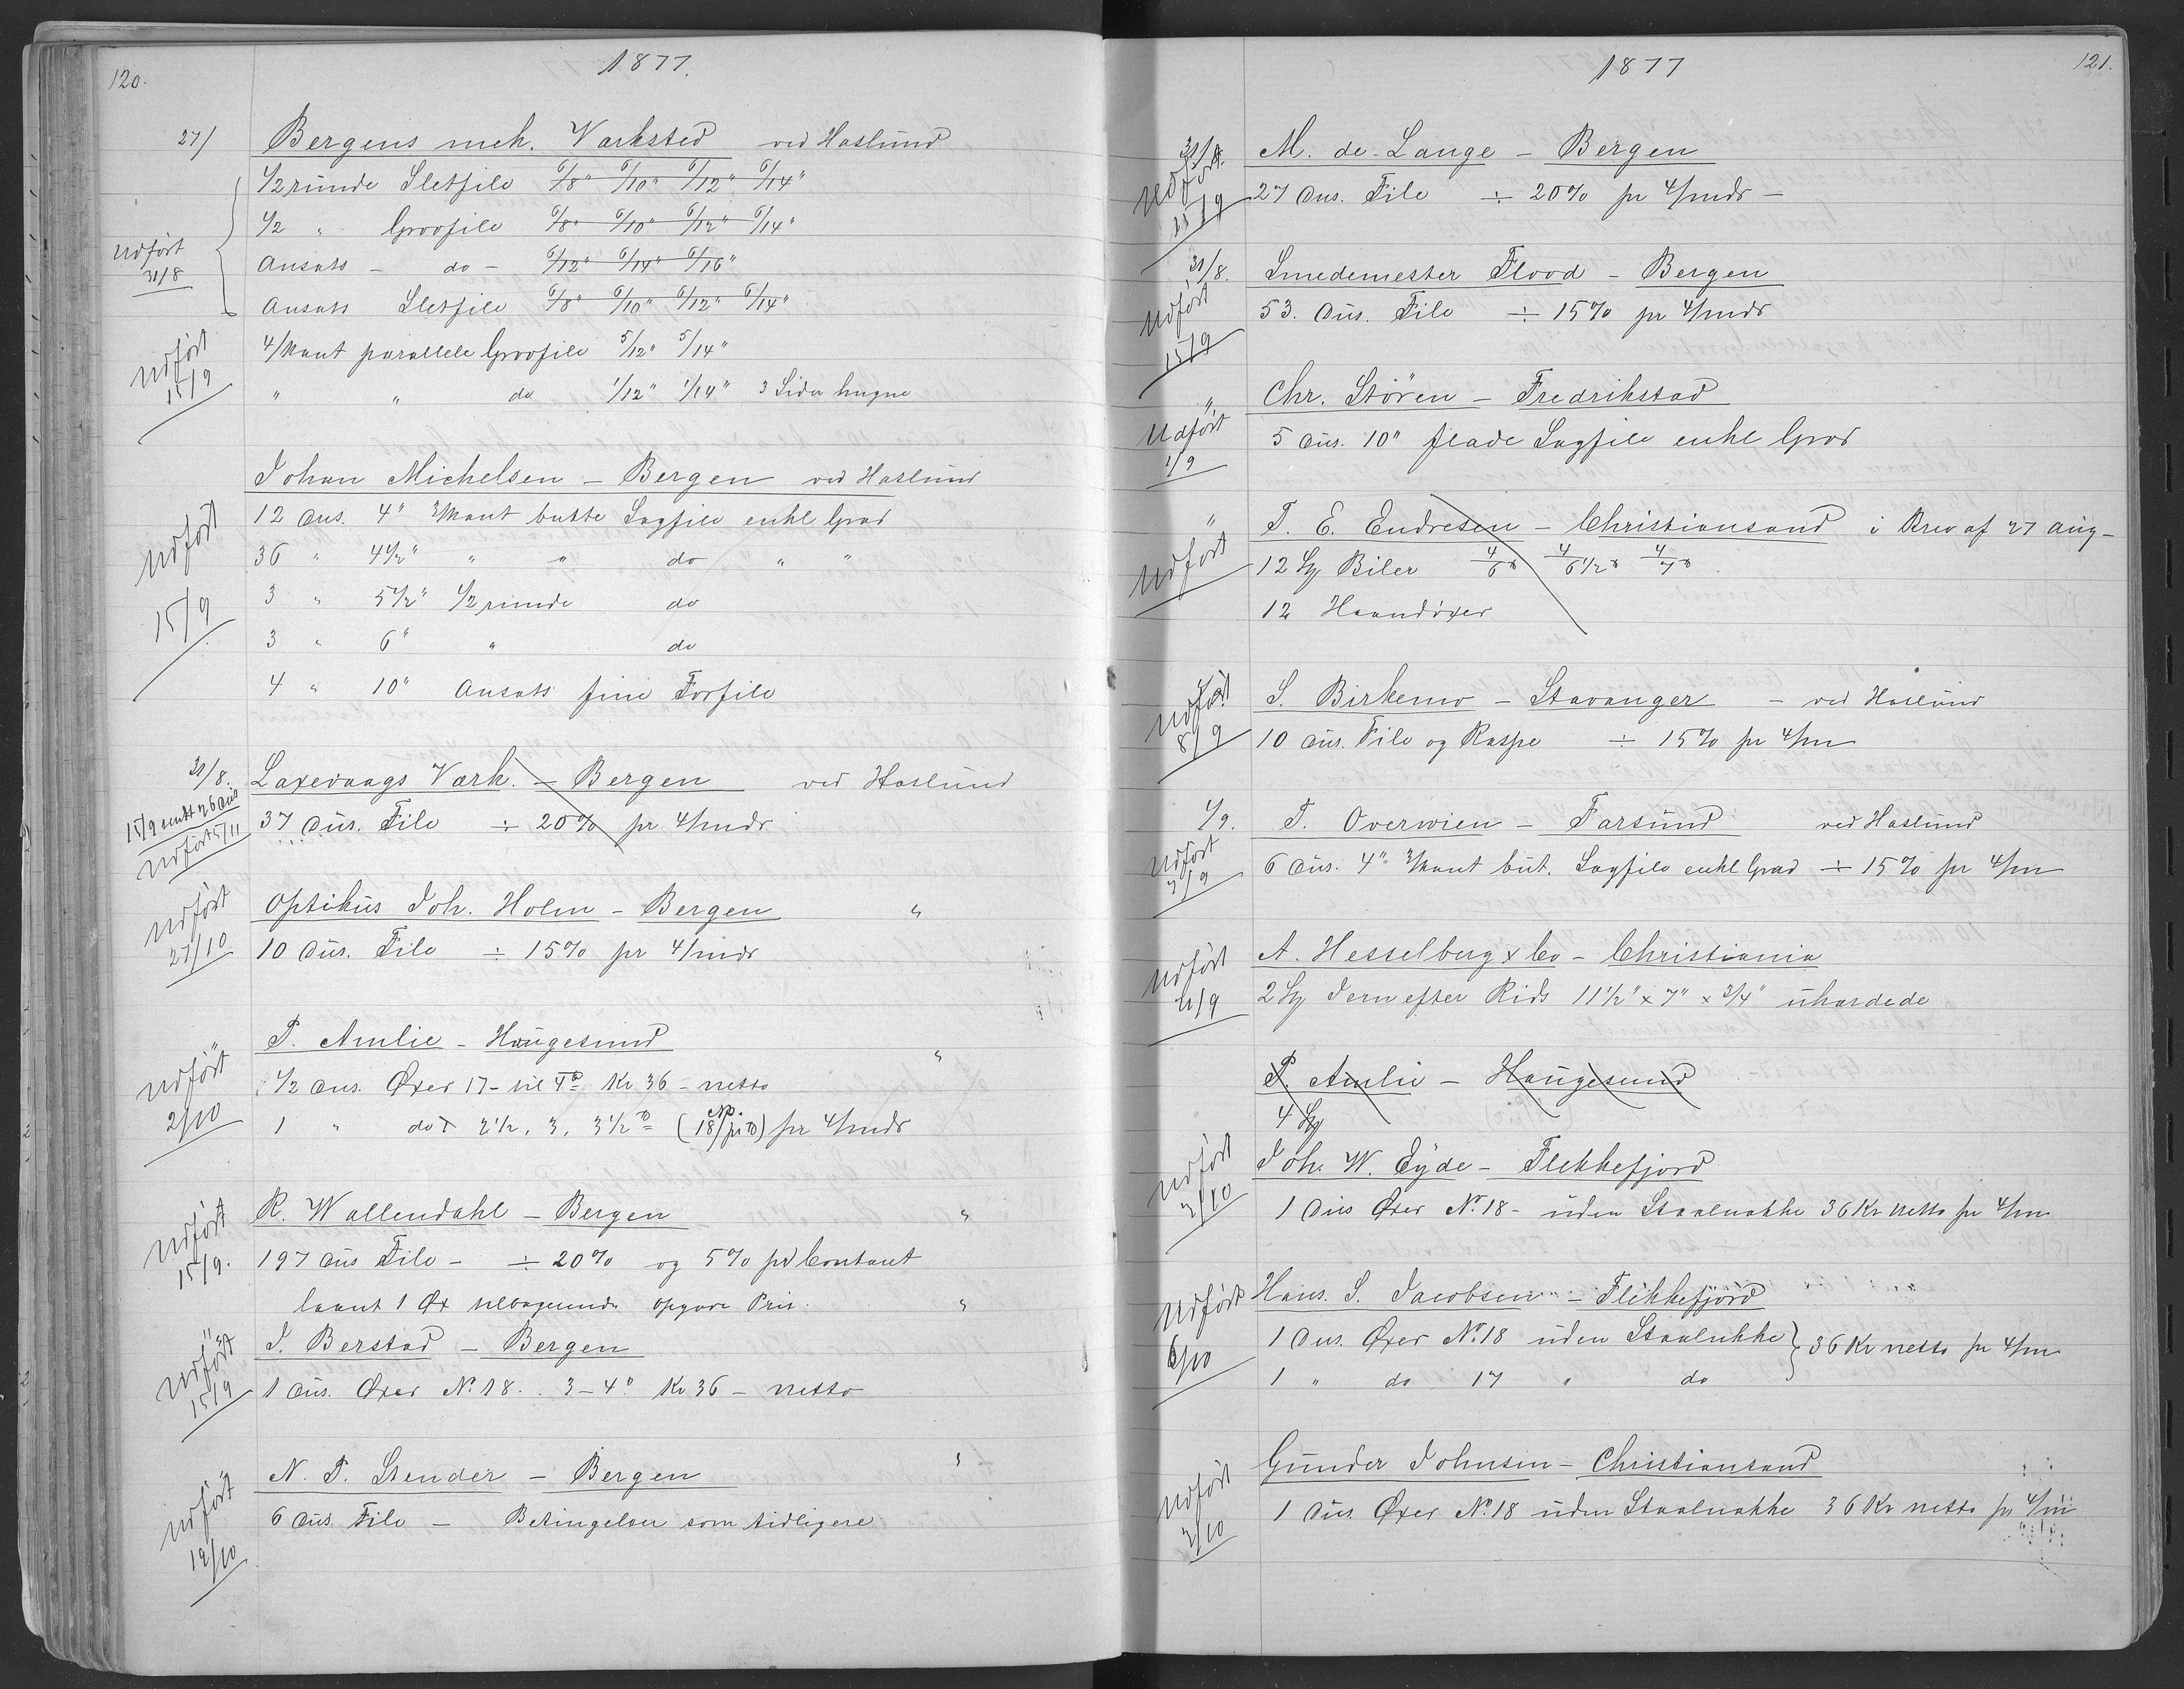 120.
1877.
27/ Bergens mek. Værksted ved Haslund
1/2 runde Sletfile 6/8" 6/10" 6/12" 6/14"
1/2 " Grovfile 6/8" 6/10" 6/12" 6/14"
Udført 31/8
Ansats - do - 6/12" 6/14" 6/16"
Ansats Sletfile 6/8" 6/10" 6/12" 6/14"
Udført 15/9
4/kant parallele Grovfile 5/12" 5/14"
" " do 1/12" 1/14" 3 Sider hugne
Johan Michelsen - Bergen ved Haslund
Udført 15/9
12 Dus. 4" 3/kant butte Sagfile enkl Grad
36 " 4 1/2" " " do " "
3 " 5 1/2" 1/2 runde do
3 " 6" " do
4 " 10" Ansats fine Forfile
31/8. Laxevaags Værk. - Bergen ved Haslund
15/9 sendt 26 Dus
Udført 5/11
37 Dus. File ÷ 20% pr 4/mdr
Optikus Joh. Holm - Bergen "
Udført 27/10
10 Dus. File ÷ 15% pr 4/mdr
" P. Amlie - Haugesund "
Udført 2/10
1/2 Dus. Øxer 17 - til 4 ℔ Kr 36 - netto
1 " do 2 1/2, 3, 3 1/2 ℔ (No. 18/pi ℔) pr 4/mdr
R. Wallendahl - Bergen "
Udført 15/9.
197 Dus File - ÷ 20% og 5% pr Contant
laant 1 Øx tilbagesende opgave Pris. "
" J. Berstad - Bergen
Udført 15/9
1 Dus. Øxer No. 18. 3-4 ℔ Kr 36 - netto
N. P. Stender - Bergen "
Udført 12/10
6 Dus. File - Betingelser som tidligere
1877
121.
31/8. M. de Lange - Bergen
Udført 15/9
27 Dus. File ÷ 20% pr 4/mdr -
31/8. Smedemester Flood - Bergen
Udført 15/9
53. Dus. File ÷ 15% pr 4/mdr
" Chr. Stören - Fredrikstad
Udført 1/9
5 Dus. 10" flade Sagfile enkl Grad
" T. E. Endresen - Christiansand i Brev af 27 Aug -
Udført
12 Stk Biler 4/6 ℔ 4/6 1/2 ℔ 4/7 ℔
12 Haandöxer
S. Birkemo - Stavanger - ved Haslund
Udført 8/9
10 Dus. File og Raspe ÷ 15% pr 4/m
1/9. T. Overwien - Farsund ved Haslund
Udført 3/9
6 Dus. 4" 3/kant but. Sagfile enkl Grad ÷ 15% pr 4/m
A. Hesselberg & Co - Christiania
Udført 21/9
2 Stk Jern efter Rids 11 1/2" x 7" x 3/4" uhærdede
P. Amlie - Haugesund
4 Stk
Joh. W. Eyde - Flekkefjord
Udført 2/10
1 Dus Øxer No. 18 - uden Staalnakke 36 Kr netto pr 4/m
Hans. S. Jacobsen - Flekkefjord
Udført 6/10
1 Dus. Øxer No. 18 uden Staalnakke } 36 Kr netto pr 4/m
1 " do 17 " do
Gunder Johnsen - Christiansand
Udført 2/10
1 Dus. Øxer No. 18 uden Staalnakke 36 Kr netto pr 4/m